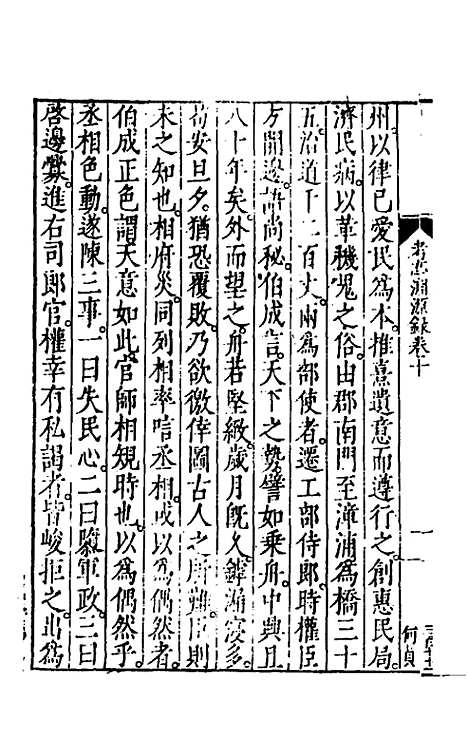 考亭淵源錄卷十
州以律己愛民為本推熹遺意而遵行之創惠民局
濟民病以革禨鬼之俗由郡南門至漳浦為橋三十
五治道千二百丈兩為部使者遷工部侍郎時權臣
方開邊語尚秘伯成言天下之勢譬如乘舟中興且
八十年矣外而望之舟若堅緻歲月既久罅漏寖多
苟安旦夕猶恐覆敗乃欲徼倖圖古人之所難臣則
未之知也相府災同列相率唁丞相或以為偶然者
伯成正色謂天意如此官師相規時也以為偶然乎
丞相色動遂陳三事一曰失民心二曰隳軍政三曰
啓邊釁進右司郎官權幸有私謁者皆峻拒之出為
何貞